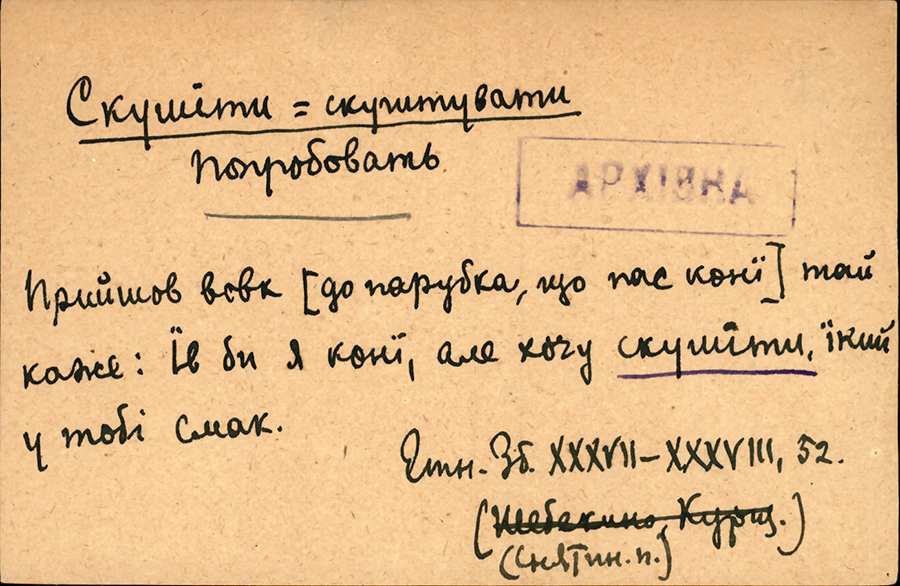 Скушїти = скуштувати
попробовать
АРХІВНА
Прийшов вовк [до парубка, що пас конї] тай
каже: Їв би я конї, але хочу скушїти, їкий
у тобі смак.
Етн. Зб. XXXVII–XXXVIII, 52.
(Шебекино, Курщ.)
(Снятин. п.)